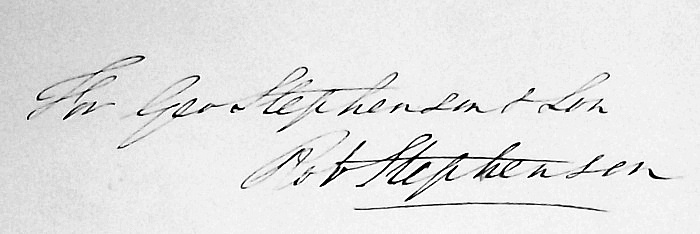 For Geo Stephenson & Son
Rob Stephenson